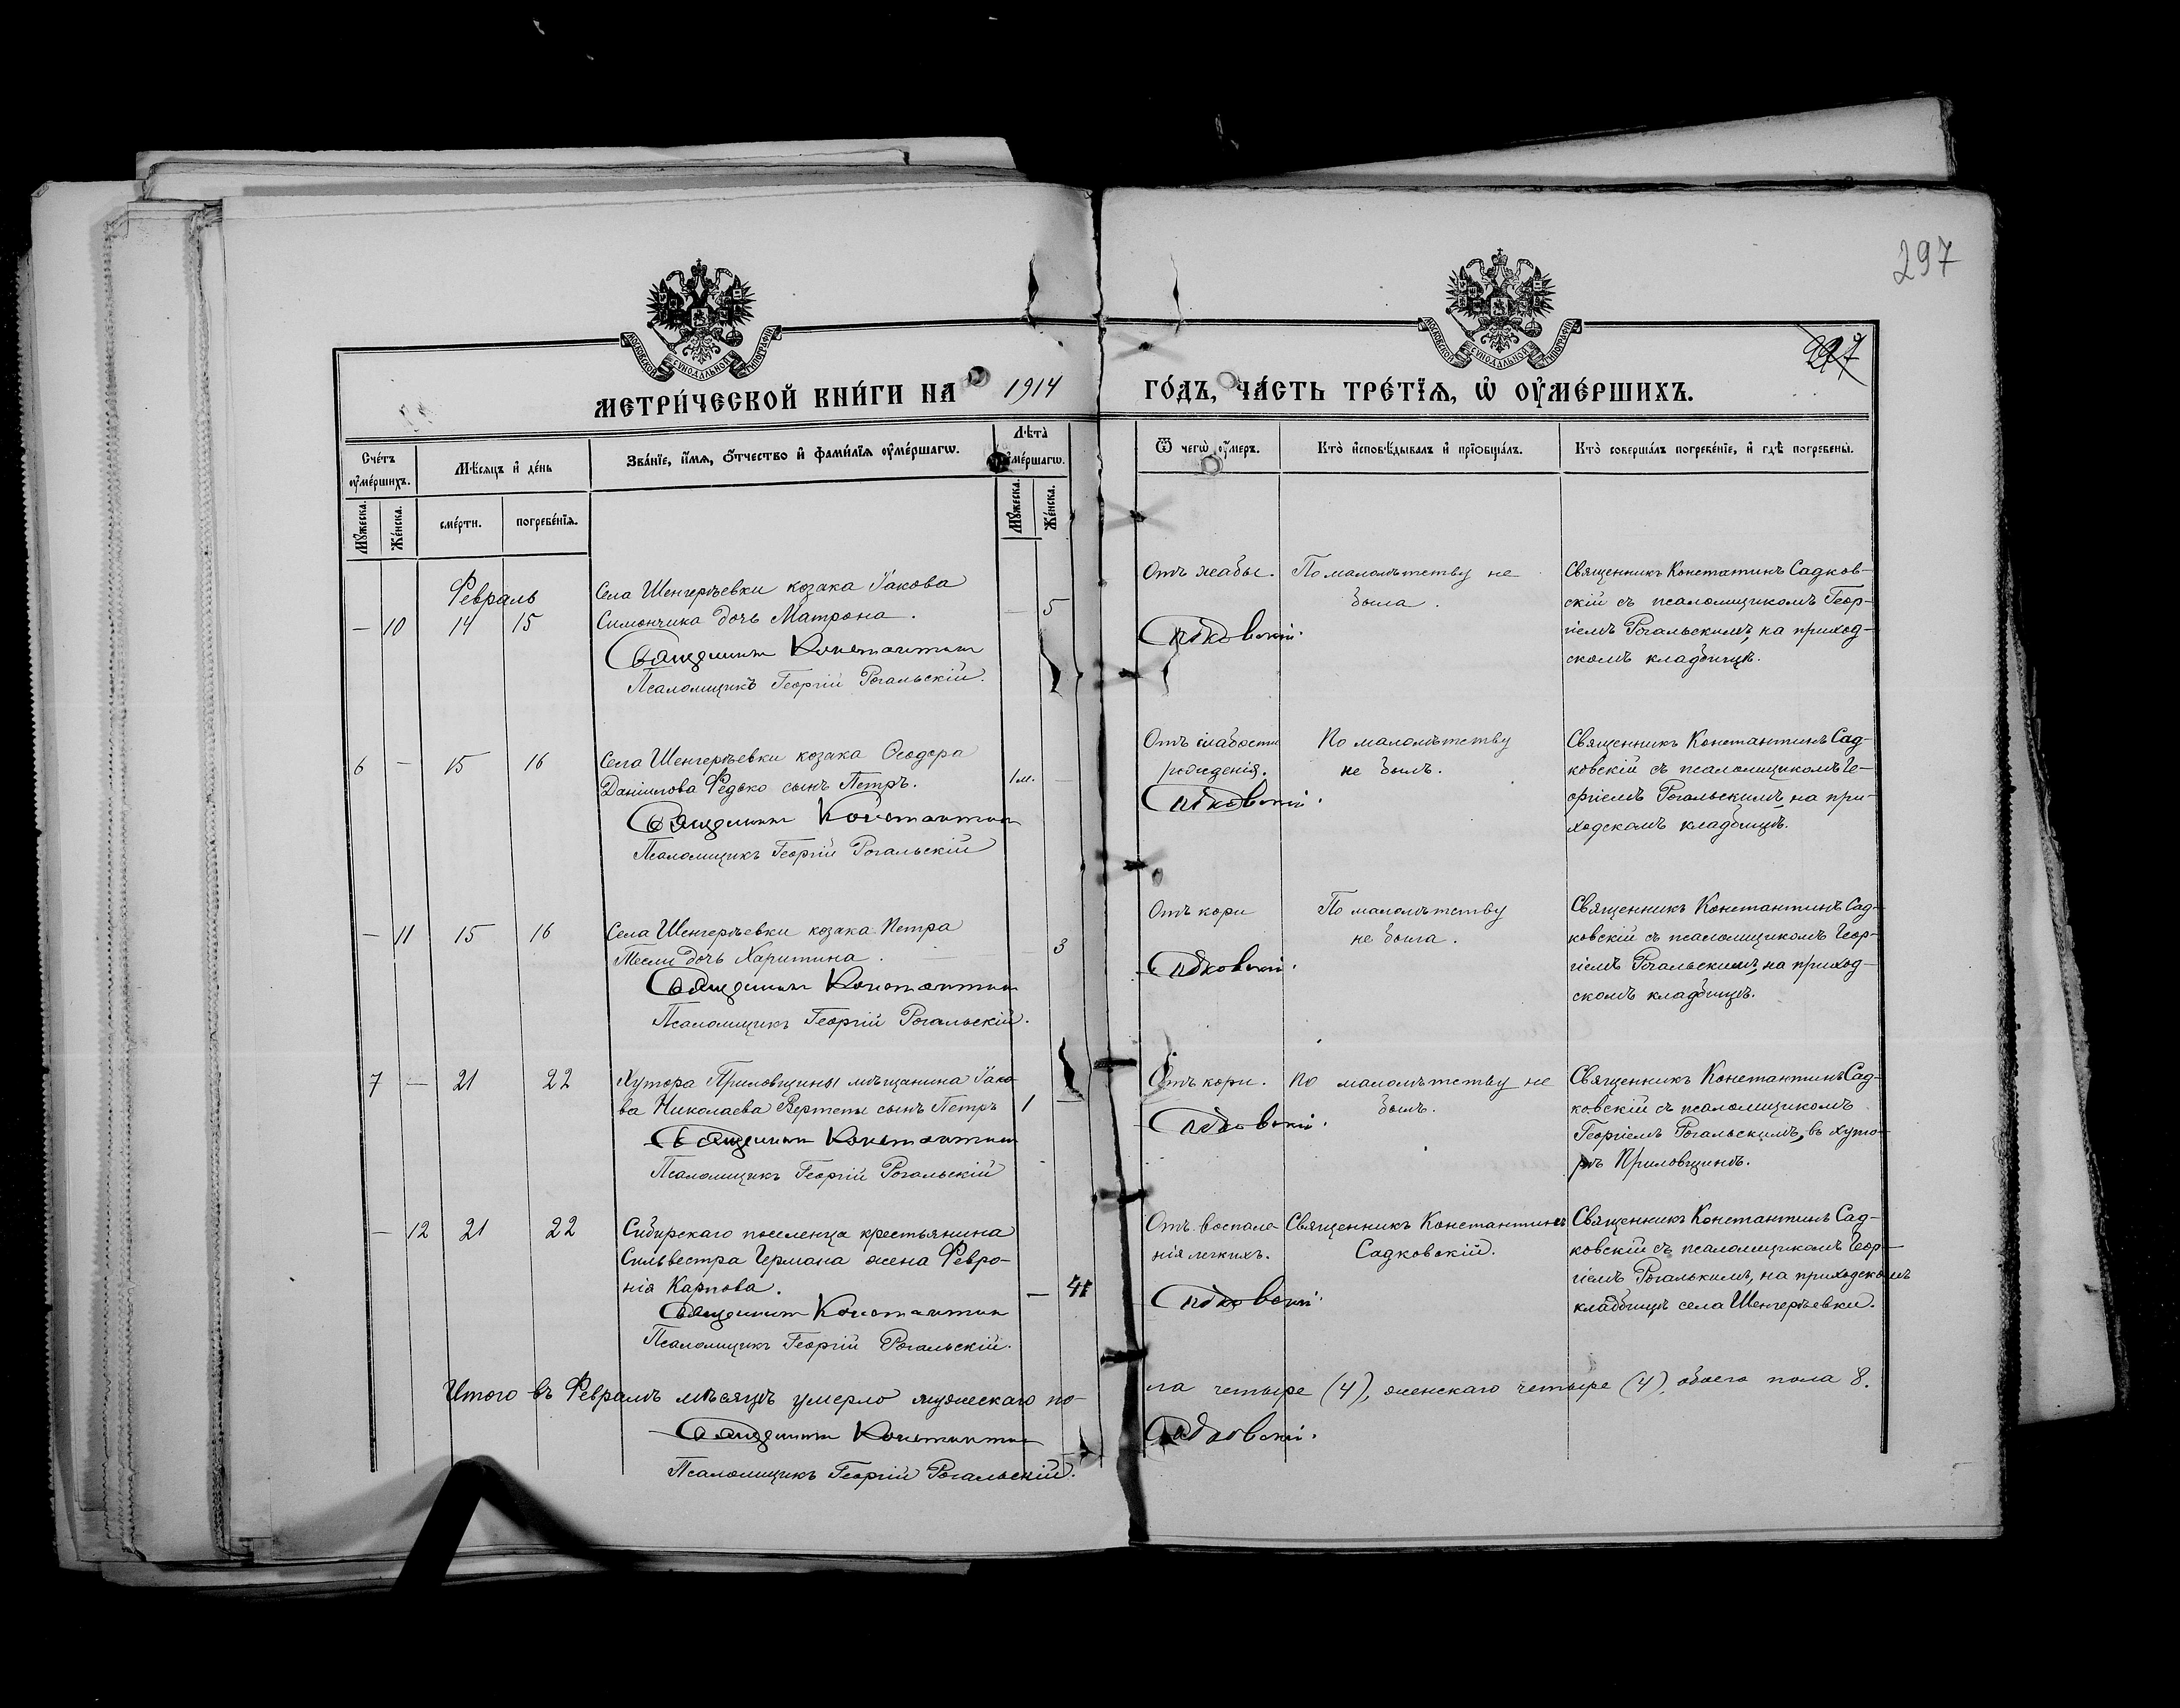 297
297
МОСКОВСКОЙ СѴНОДАЛЬНОЙ ТИПОГРАФІИ
МОСКОВСКОЙ СѴНОДАЛЬНОЙ ТИПОГРАФІИ
МЕТРИ́ЧЕСКОЙ КНИ́ГИ НА 1914 ГО́ДЪ, ЧА́СТЬ ТРЕ́ТЇѦ, Ѡ҆ ОУ҆МЕ́РШИХЪ.
Сче́тъ оу҆ме́ршихъ.
Мѣ́сѧцъ и҆ де́нь
Зва́нїе, и҆́мѧ, ѻ҆́тчество и҆ фами́лїѧ оу҆ме́ршагѡ.
Лѣта̀ оу҆ме́ршагѡ.
Ѿ чегѡ̀ оу҆́меръ.
Кто̀ и҆сповѣ́дывалъ и҆ прїѡбща́лъ.
Кто̀ соверша́лъ погребе́нїе, и҆ гдѣ̀ погребены̀.
Мꙋ́жеска.
Же́нска.
сме́рти.
погребе́нїѧ.
Мꙋ́жеска.
Же́нска.
Февраль
— 10 14 15
Села Шенгерѣевки козака Іакова
Симончика дочь Матрона.
— 5
Священникъ Константинъ
Псаломщикъ Георгій Рогальскій.
Отъ жабы.
Садковскій.
По малолѣтству не
была.
Священникъ Константинъ Садков-
скій съ псаломщикомъ Геор-
гіемъ Рогальскимъ, на приход-
скомъ кладбищѣ.
6 — 15 16
Села Шенгерѣевки козака Ѳеодора
Даніилова Федько сынъ Петръ.
1 м. —
Священникъ Константинъ
Псаломщикъ Георгій Рогальскій
Отъ слабости
рожденія.
Садковскій.
По малолѣтству
не былъ.
Священникъ Константинъ Сад-
ковскій съ псаломщикомъ Ге-
оргіемъ Рогальскимъ, на при-
ходскомъ кладбищѣ.
— 11 15 16
Села Шенгерѣевки козака Петра
Тесли дочь Харитина.
3
Священникъ Константинъ
Псаломщикъ Георгій Рогальскій.
Отъ кори
Садковскій.
По малолѣтству
не была.
Священникъ Константинъ Сад-
ковскій съ псаломщикомъ Геор-
гіемъ Рогальскимъ, на приход-
скомъ кладбищѣ.
7 — 21 22
Хутора Приловщины мѣщанина Іако-
ва Николаева Вертепы сынъ Петръ
1 —
Священникъ Константинъ
Псаломщикъ Георгій Рогальскій
Отъ кори.
Садковскій.
По малолѣтству не
былъ.
Священникъ Константинъ Сад-
ковскій съ псаломщикомъ
Георгіемъ Рогальскимъ, въ хуто-
рѣ Приловщинѣ.
— 12 21 22
Сибирскаго поселенца крестьянина
Сильвестра Германа жена Февро-
нія Карпова.
— 41
Священникъ Константинъ
Псаломщикъ Георгій Рогальскій.
Отъ воспале
нія легкихъ.
Садковскій.
Священникъ Константинъ
Садковскій.
Священникъ Константинъ Сад-
ковскій съ псаломщикомъ Геор-
гіемъ Рогалькимъ, на приходскомъ
кладбищѣ села Шенгерѣевки.
Итого въ Февралѣ мѣсяцѣ умерло мужескаго по-
ла четыре (4), женскаго четыре (4), обоего пола 8.
Священникъ Константинъ Садковскій.
Псаломщикъ Георгій Рогальскій.